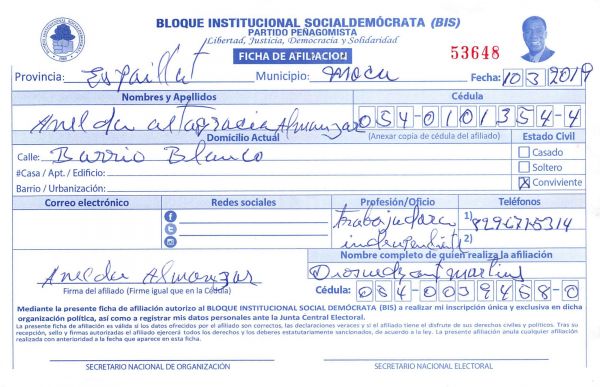 BLOQUE INSTITUCIONAL SOCIALDEMÓCRATA (BIS)
PARTIDO PEÑAGOMISTA
¡Libertad, Justicia, Democracia y Solidaridad
FICHA DE AFILIACION
53648
Provincia: Espaillat Municipio: Moca Fecha: 10 3 2019
Nombres y Apellidos Cédula
Anelda altagracia Almanzar 054-0101354-4
Domicilio Actual (Anexar copia de cédula del afiliado) Estado Civil
Calle: Barrio Blanco Casado
#Casa / Apt. / Edificio: Soltero
Barrio / Urbanización: X Conviviente
Correo electrónico Redes sociales Profesión/Oficio Teléfonos
trabajadora 1) 829-671-5314
independiente 2)
Nombre completo de quien realiza la afiliación
Anelda Almanzar martinez
Firma del afiliado (Firme igual que en la Cédula) Cédula: 054-0039458-0
Mediante la presente ficha de afiliación autorizo al BLOQUE INSTITUCIONAL SOCIAL DEMÓCRATA (BIS) a realizar mi inscripción única y exclusiva en dicha
organización política, así como a registrar mis datos personales ante la Junta Central Electoral.
La presente ficha de afiliación es válida si los datos ofrecidos por el afiliado son correctos, las declaraciones veraces y si el afiliado tiene el disfrute de sus derechos civiles y políticos. Tras su
recepción, sello y firmas autorizadas el afiliado ejercerá todos los derechos y los deberes estatutariamente sancionados, de acuerdo a la ley. La presente afiliación anula cualquier afiliación
realizada con anterioridad a la fecha que aparece en esta ficha.
SECRETARIO NACIONAL DE ORGANIZACIÓN SECRETARIO NACIONAL ELECTORAL